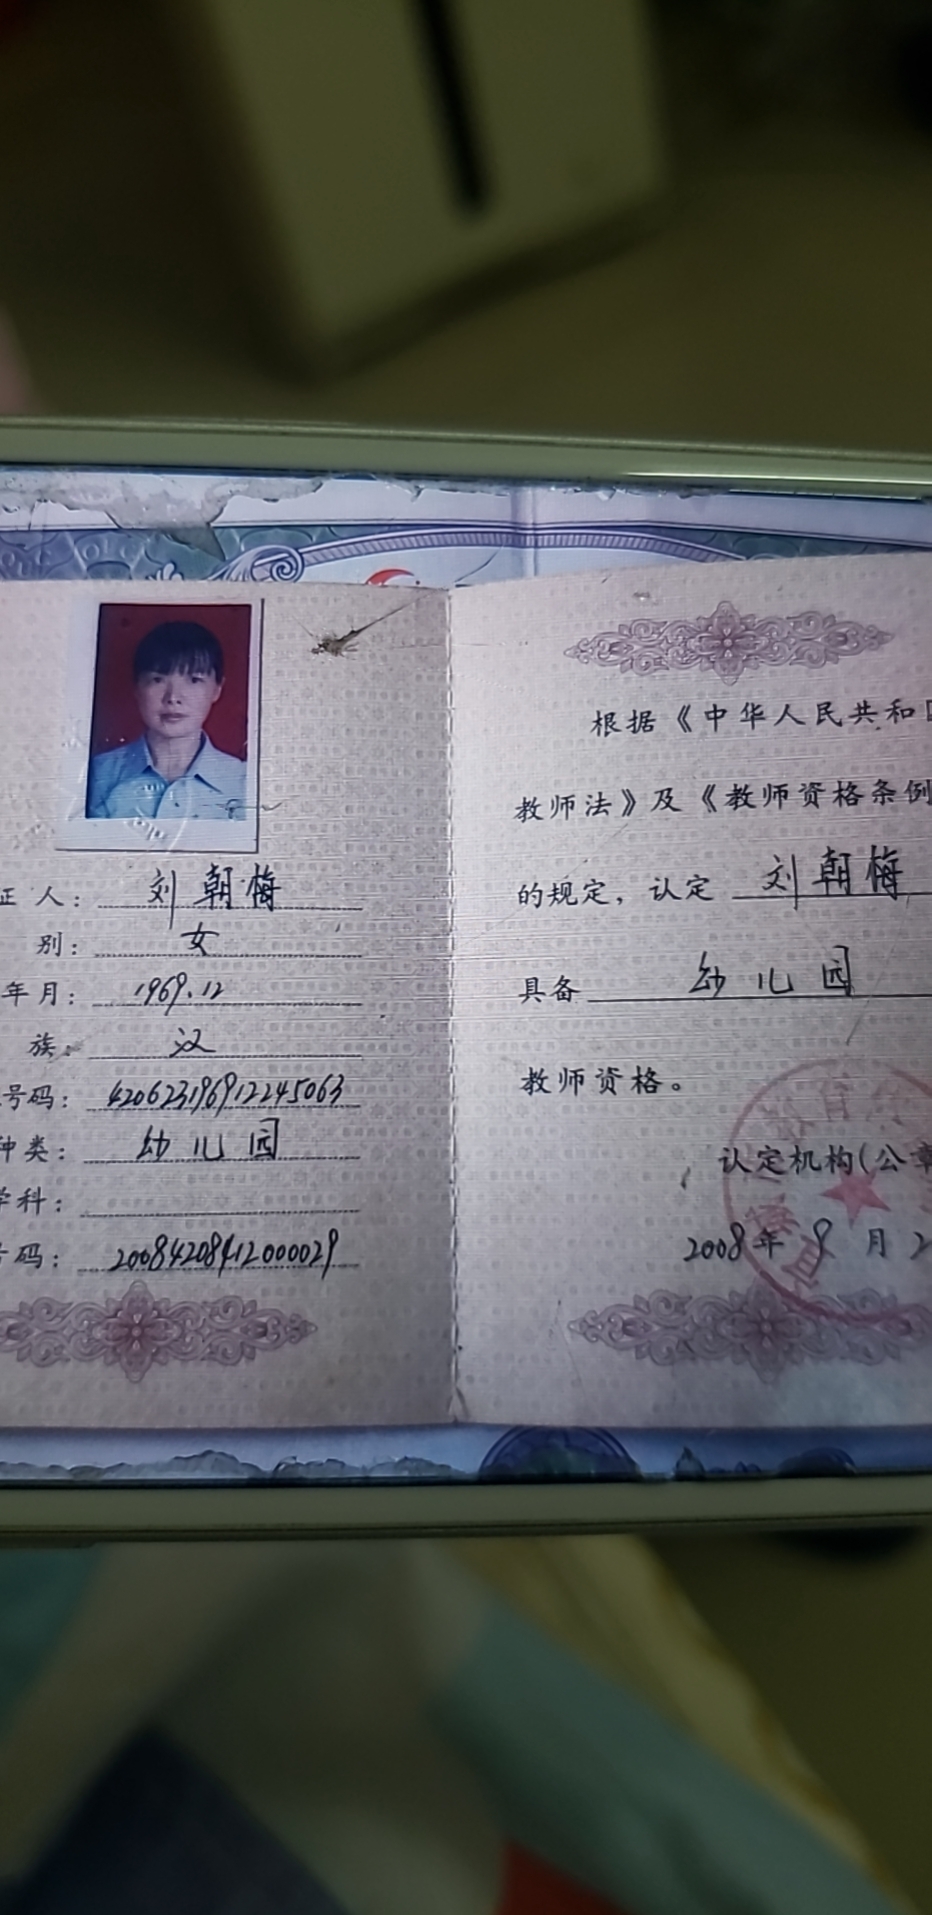 证人：刘朝梅
别：女
年月：1969.12
族：汉
号码：420623196912245063
种类：幼儿园
学科：
号码：20084208412000029
根据《中华人民共和国
教师法》及《教师资格条例
的规定，认定 刘朝梅
具备 幼儿园
教师资格。
认定机构（公章
2008年9月2